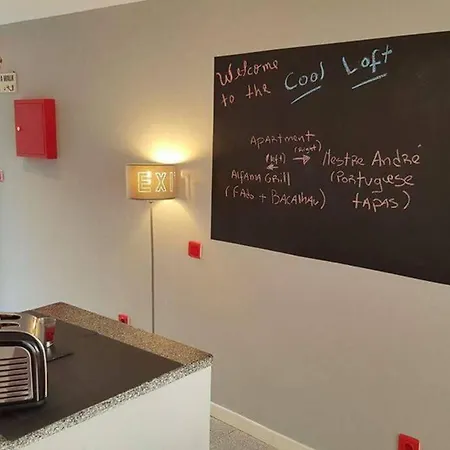 Welcome
to the Cool Loft
Apartment
(left) (Right)
Alfama Grill Mestre André
(Fado + Bacalhau) (Portuguese
tapas)
EXI